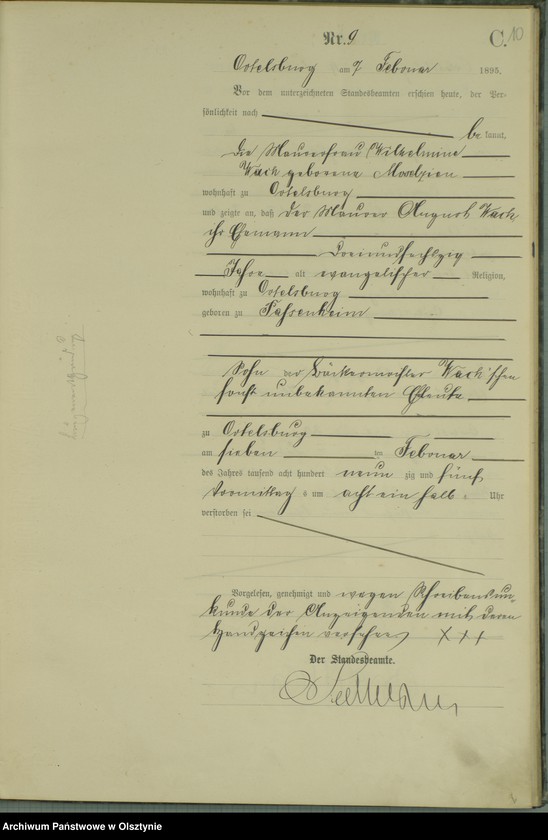 Nr. 9
C.
10
Ortelsburg am 7 Februar 1895.
Vor dem unterzeichneten Standesbeamten erschien heute, der Per-
sönlichkeit nach
bekannt,
die Maurerfrau Wilhelmine
Wack geborene
wohnhaft zu Ortelsburg
und zeigte an, daß der Maurer August Wack
ihr Ehemann
Dreiundsechszig
Jahre alt evangelischer Religion,
wohnhaft zu Ortelsburg
geboren zu
Sohn der Wack'schen
sonst unbekannten Eheleute
zu Ortelsburg
am sieben ten Februar
des Jahres tausend acht hundert neun zig und fünf
Vormittags um acht ein halb Uhr
verstorben sei
Vorgelesen, genehmigt und wegen Schreibensun-
kunde der Anzeigenden mit deren
Handzeichen versehen XXX
Der Standesbeamte.
Archiwum Państwowe w Olsztynie